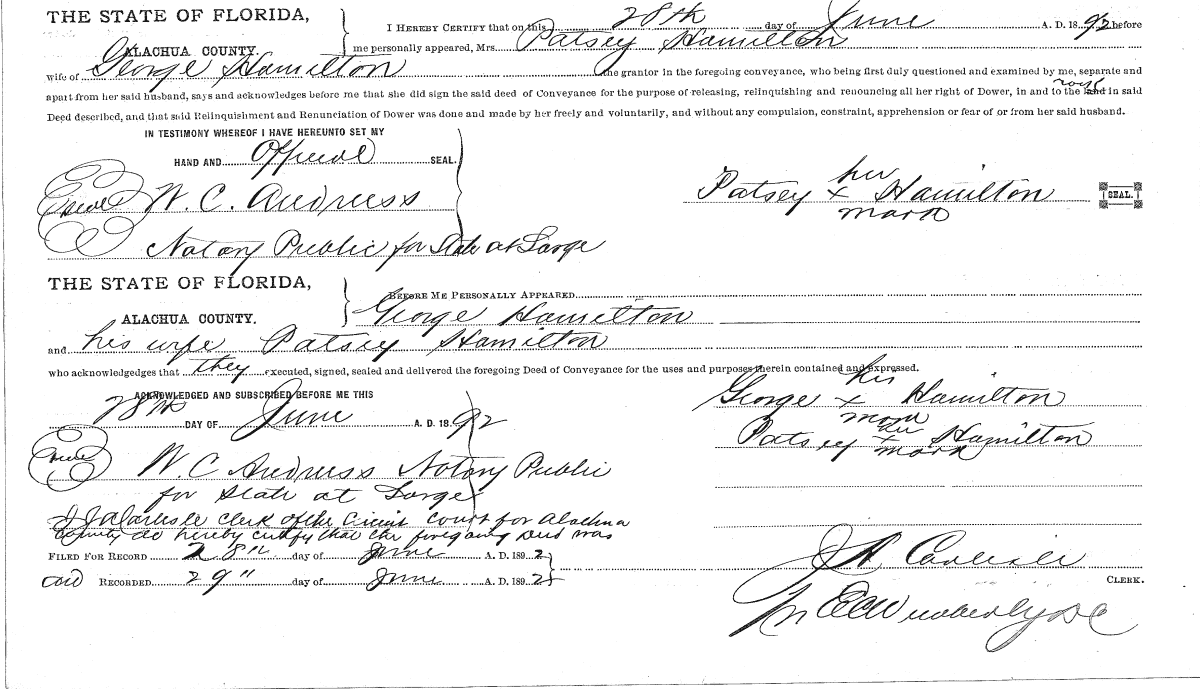 THE STATE OF FLORIDA,
ALACHUA COUNTY.
I HEREBY CERTIFY that on this 28th day of June A. D. 1892 before
me personally appeared, Mrs. Patsey Hamilton
wife of George Hamilton the grantor in the foregoing conveyance, who being first duly questioned and examined by me, separate and
apart from her said husband, says and acknowledges before me that she did sign the said deed of Conveyance for the purpose of releasing, relinquishing and renouncing all her right of Dower, in and to the land in said
Deed described, and that said Relinquishment and Renunciation of Dower was done and made by her freely and voluntarily, and without any compulsion, constraint, apprehension or fear of or from her said husband.
IN TESTIMONY WHEREOF I HAVE HEREUNTO SET MY
HAND AND Official SEAL.
her
Patsey x Hamilton SEAL.
mark
Seal W. C. Andress
Notary Public for State at Large
THE STATE OF FLORIDA,
ALACHUA COUNTY.
BEFORE ME PERSONALLY APPEARED
George Hamilton
and his wife Patsey Hamilton
who acknowledges that they executed, signed, sealed and delivered the foregoing Deed of Conveyance for the uses and purposes therein contained and expressed.
ACKNOWLEDGED AND SUBSCRIBED BEFORE ME THIS
28th DAY OF June A. D. 1892
his
George x Hamilton
mark
her
Patsey x Hamilton
mark
Seal W. C. Andress Notary Public
for State at Large
I J A Carlisle clerk of the Circuit Court for Alachua
County do hereby certify that the foregoing Deed was
FILED FOR RECORD 28th day of June A. D. 1892
and RECORDED 29" day of June A. D. 1892
J A Carlisle
CLERK.